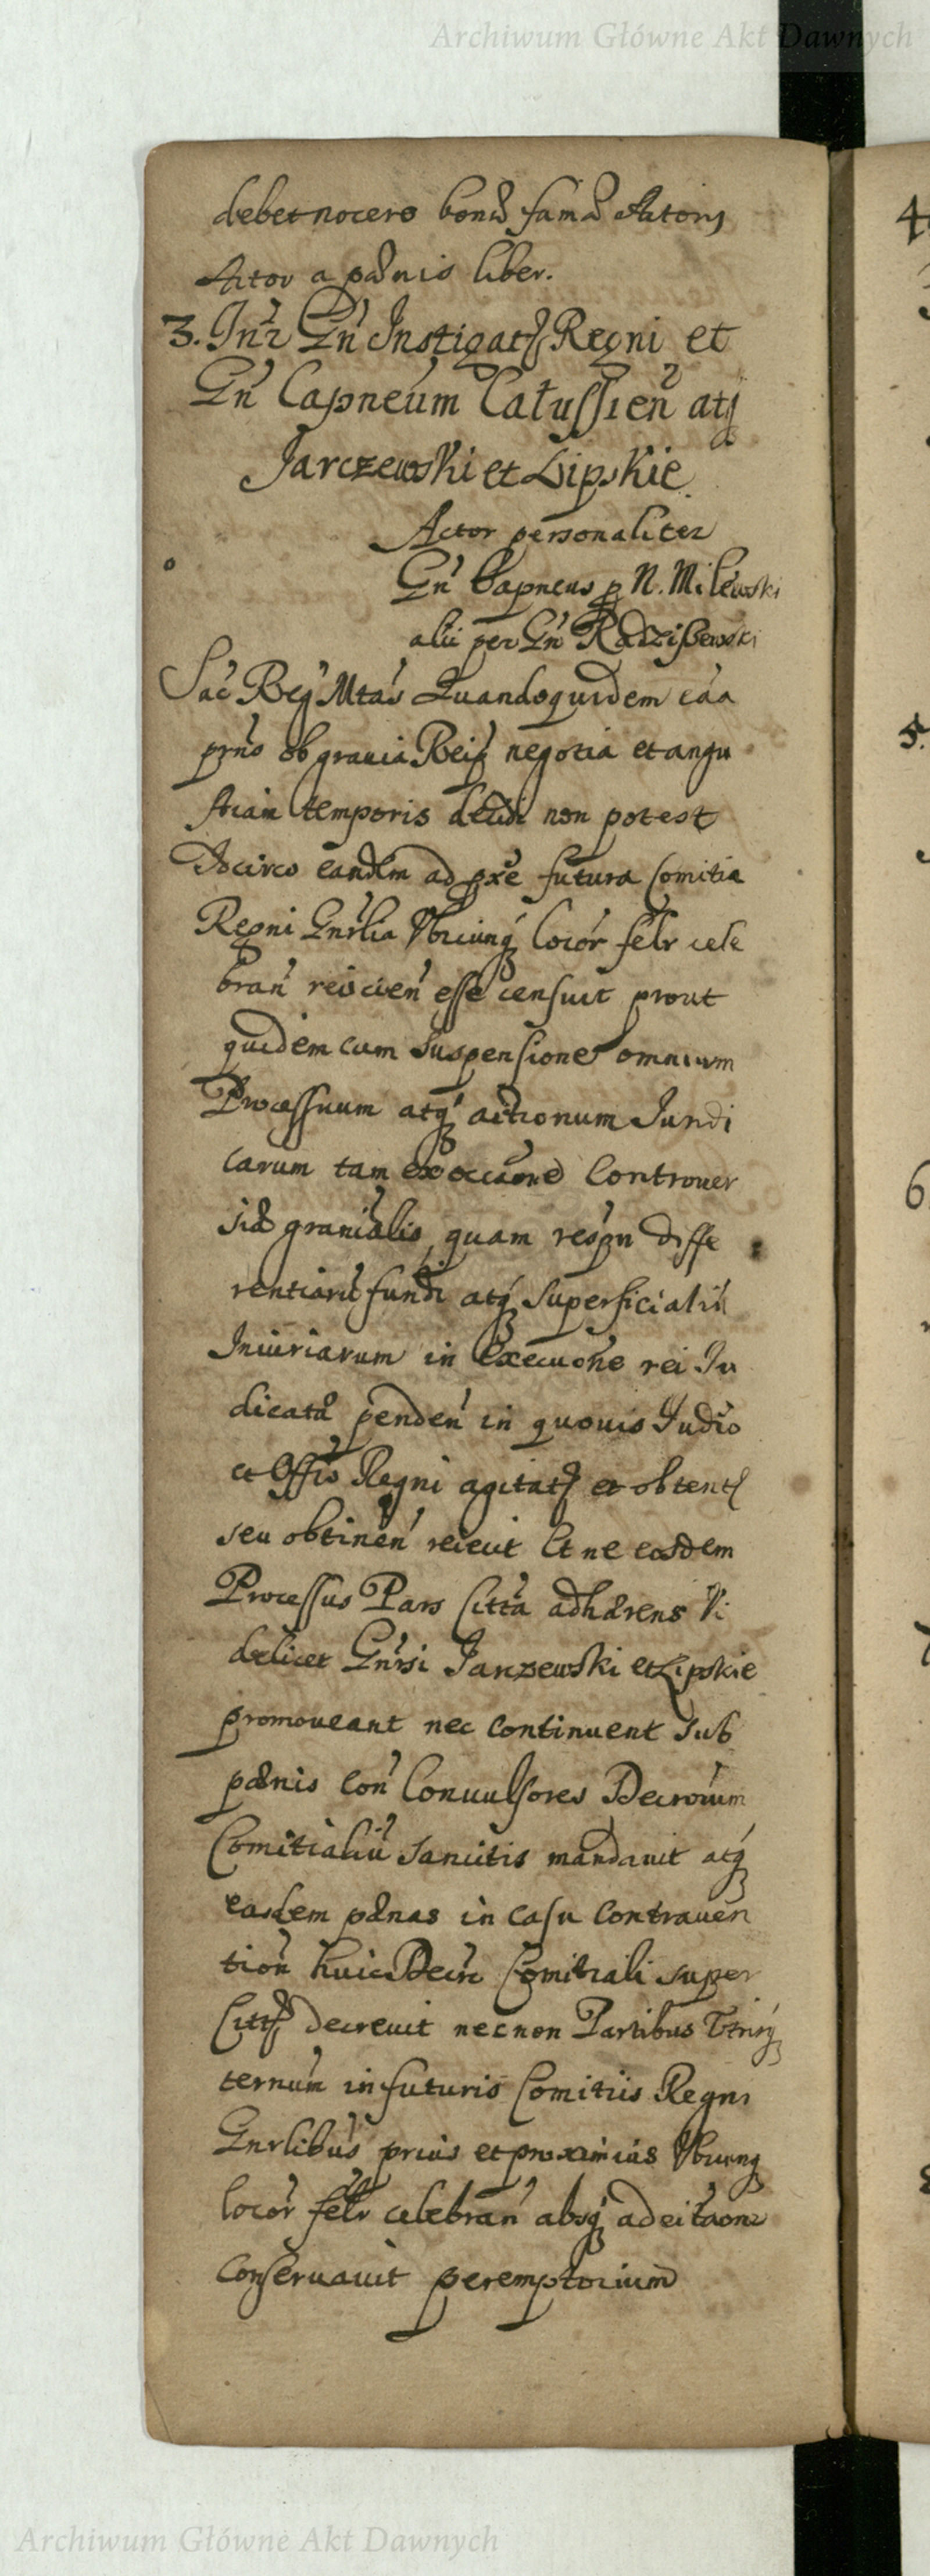 Archiwum Główne Akt Dawnych
debet nocere bonæ famæ Actoris
Actor a pœnis liber.
3. Intr Gn Instigat Regni et
Gn Capneum Całussien atq
Jarczewski et Lipskie
Actor personaliter
Gn Capneus p N. Milewski
alii per Gn Radziszewski
Sac Reg Mtas Quandoquidem caa
pns ob gravia Reip negotia et angu
stiam temporis decidi non potest
Idcirco eandem ad pxe futura Comitia
Regni Gnrlia Vbicunq locor felr cele
bran reiicien esse censuit prout
quidem cum suspensione omnium
Processuum atq actionum Juridi
carum tam ex occaone Controver
siæ granicialis, quam respu diffe
rentiaru fundi atq superficialiu
Iniuriarum in Execuone rei Iu
dicatæ penden in quovis Judio
et Offio Regni agitat et obtent
seu obtinen reiecit Et ne eosdem
Processus Pars Citta adhærens Vi
delicet Gnrsi Jarzewski et Lipskie
promoveant nec continuent sub
pœnis con Convulsores Decrorum
Comitialiu sancitis mandavit atq
easdem pœnas in casu contraven
tion huic Decr Comitiali super
Citt decrevit necnon Partibus
ternum in futuris Comitiis Regni
Gnrlibus prius et proximius Vbicunq
locor felr celebran absq adcitaone
conservavit peremptorium
Archiwum Główne Akt Dawnych